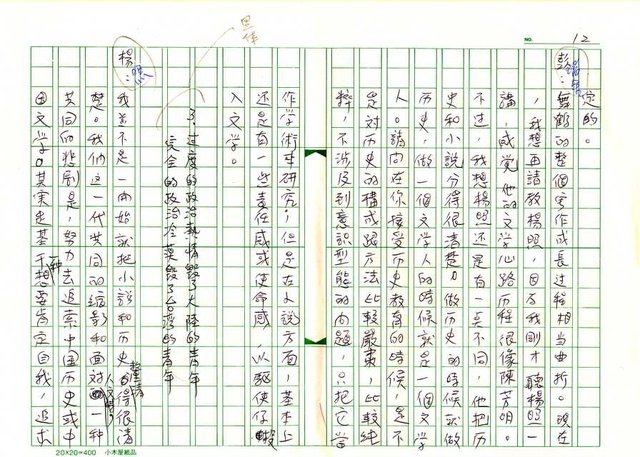 NO. 12
定的。
彭：舞鶴的整個寫作成長過程相當曲折。現在
，我想再請教楊照，因為我剛才聽楊照一
講，感覺他的文學心路歷程很像陳芳明。
不過，我想楊照還是有一點不同，他把歷
史和小說分得很清楚。做歷史的時候就做
歷史，做一個文學人的時候就是一個文學
人。請問在你接受歷史教育的時候，是不
是對歷史的構成跟方法比較嚴肅，比較純
粹，不涉及到意識型態的問題，只把它當
作學術來研究；但是在小說方面，基本上
還是有一些責任感或使命感，以驅使你
入文學。
黑體
3.過度的政治熱情毀了大陸的青年
完全的政治冷漠毀了台灣的青年
楊照：我並不是一開始就把小說和歷史得很清
楚。我們這一代共同的縮影和面對一種
共同的悲劇是，努力去追索中國歷史或中
國文學。其實是基于一種想要肯定自我，追求
20×20=400 小木屋紙品